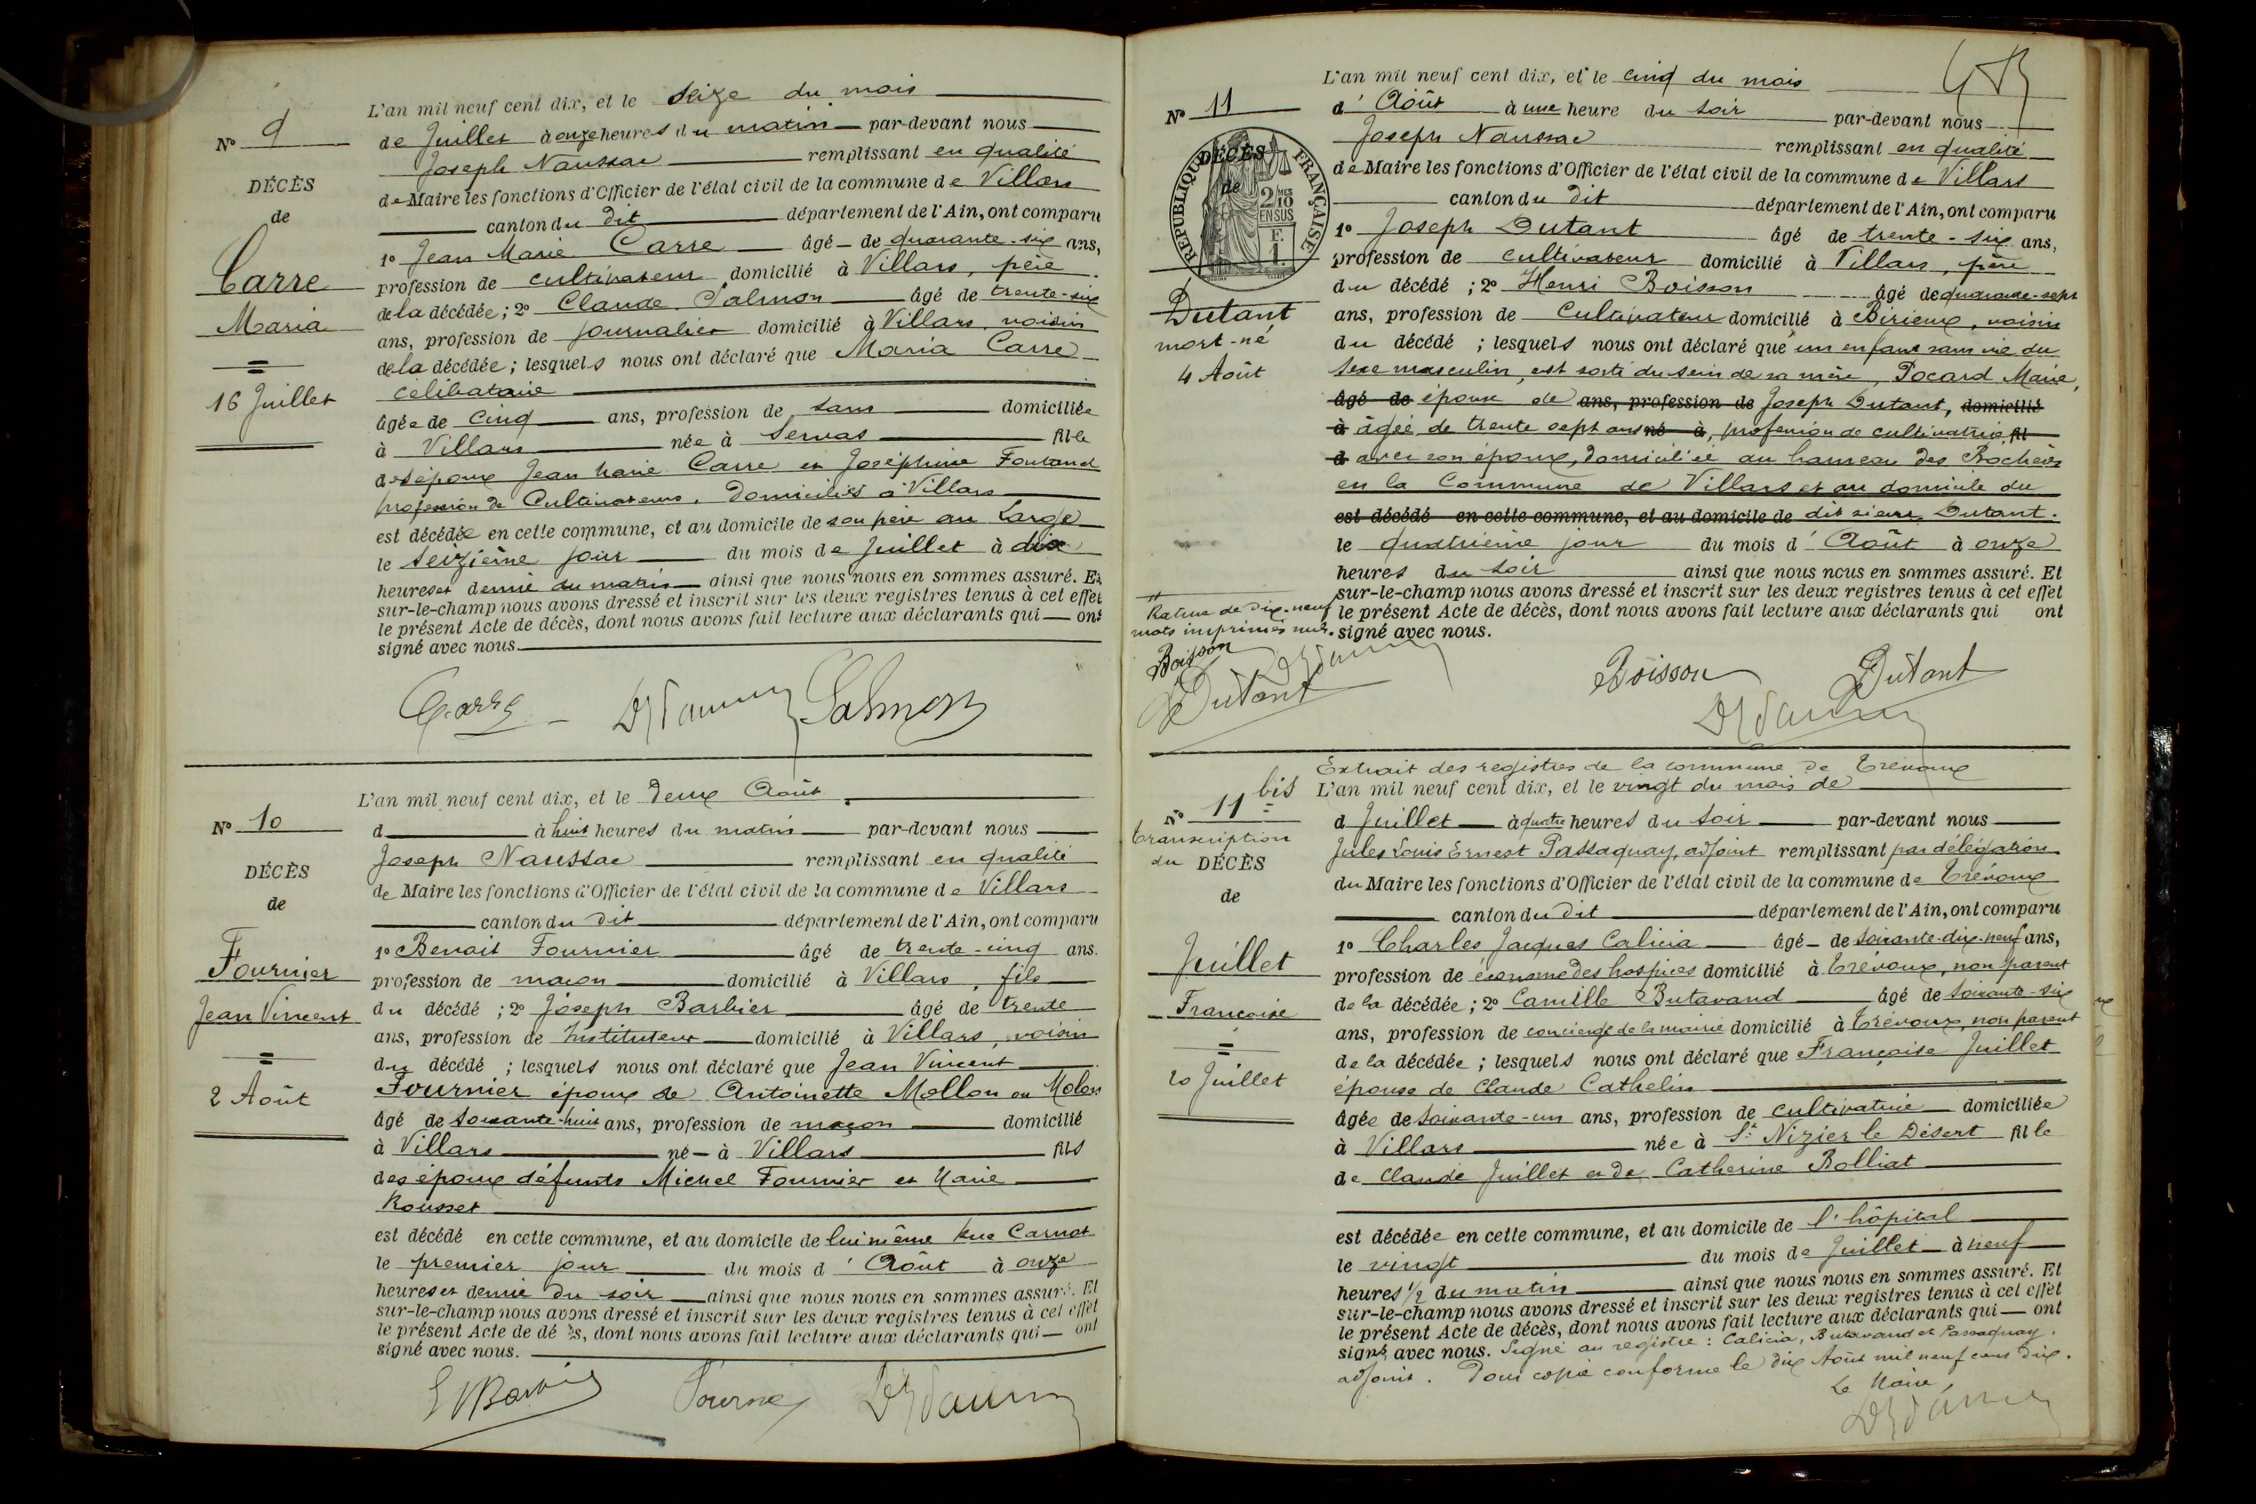 L'an mil neuf cent dix, et le seize du mois
N° 9
de Juillet à onze heures du matin par-devant nous
Joseph Naussac remplissant en qualité
DÉCÈS
de Maire les fonctions d'Officier de l'état civil de la commune de Villars
de
canton du dit département de l'Ain, ont comparu
1° Jean Marie Carre âgé de quarante-six ans,
Carre
profession de cultivateur domicilié à Villars, père
de la décédée ; 2° Claude Salmon âgé de trente-six
Maria
ans, profession de journalier domicilié à Villars, voisin
de la décédée ; lesquels nous ont déclaré que Maria Carre
célibataire
16 Juillet
âgée de cinq ans, profession de sans domiciliée
à Villars née à Servas fille
des époux Jean Marie Carre et Joséphine
profession de Cultivateurs, domiciliés à Villars
est décédée en cette commune, et au domicile de son père au Large
le seizième jour du mois de Juillet à dix
heures et demie du matin ainsi que nous nous en sommes assuré. Et
sur-le-champ nous avons dressé et inscrit sur les deux registres tenus à cet effet
le présent Acte de décès, dont nous avons fait lecture aux déclarants qui ont
signé avec nous.
Carre Salmon
L'an mil neuf cent dix, et le deux Août
N° 10
d à huit heures du matin par-devant nous
Joseph Naussac remplissant en qualité
DÉCÈS
de Maire les fonctions d'Officier de l'état civil de la commune de Villars
de
canton du dit département de l'Ain, ont comparu
1° Benoit Fournier âgé de trente-cinq ans.
Fournier
profession de maçon domicilié à Villars, fils
Jean Vincent
du décédé ; 2° Joseph Barbier âgé de trente
ans, profession de Instituteur domicilié à Villars, voisin
du décédé ; lesquels nous ont déclaré que Jean Vincent
2 Août
Fournier époux de Antoinette Mollon ou Molon
âgé de soixante-huit ans, profession de maçon domicilié
à Villars né à Villars fils
des époux défunts Michel Fournier et Marie
Rousset
est décédé en cette commune, et au domicile de lui même Rue Carnot
le premier jour du mois d'Août à onze
heures et demie du soir ainsi que nous nous en sommes assuré. Et
sur-le-champ nous avons dressé et inscrit sur les deux registres tenus à cet effet
le présent Acte de décès, dont nous avons fait lecture aux déclarants qui ont
signé avec nous.
Fournier
L'an mil neuf cent dix, et le cinq du mois
N° 11
d'Août à une heure du soir par-devant nous
Joseph Naussac remplissant en qualité
RÉPUBLIQUE FRANÇAISE
2/10 EN SUS
F. 1.
DÉCÈS
de
de Maire les fonctions d'Officier de l'état civil de la commune de Villars
canton du dit département de l'Ain, ont comparu
1° Joseph Dutant âgé de trente-six ans,
profession de cultivateur domicilié à Villars, père
du décédé ; 2° Henri Boisson âgé de quarante-sept
Dutant
ans, profession de Cultivateur domicilié à Birieux, voisin
mort-né
du décédé ; lesquels nous ont déclaré que un enfant sans vie du
4 Août
sexe masculin, est sorti du sein de sa mère, Pocard Marie,
âgé de épouse de ans, profession de Joseph Dutant, domicilié
à âgée de trente sept ans né à, profession de cultivatrice, fil
d avec son époux, domiciliée au hameau des Rochers
en la Commune de Villars et au domicile du
est décédé en cette commune, et au domicile de dit sieur Dutant.
le quatrième jour du mois d'Août à onze
heures du soir ainsi que nous nous en sommes assuré. Et
sur-le-champ nous avons dressé et inscrit sur les deux registres tenus à cet effet
le présent Acte de décès, dont nous avons fait lecture aux déclarants qui ont
signé avec nous.
Rature de dix-neuf
mots imprimés nuls.
Boisson
Dutant
Boisson Dutant
Extrait des registres de la commune de Trévoux
L'an mil neuf cent dix, et le vingt du mois de
N° 11 bis
d Juillet à quatre heures du soir par-devant nous
Transcription
du DÉCÈS
de
Jules Louis Ernest Passaquay, adjoint remplissant par délégation
du Maire les fonctions d'Officier de l'état civil de la commune de Trévoux
canton du dit département de l'Ain, ont comparu
1° Charles Jacques Calicia âgé de soixante-dix-neuf ans,
Juillet
profession de économe des hospices domicilié à Trévoux, non parent
Françoise
de la décédée ; 2° Camille Butavand âgé de soixante-six
ans, profession de concierge de la mairie domicilié à Trévoux, non parent
de la décédée ; lesquels nous ont déclaré que Françoise Juillet
20 Juillet
épouse de Claude Cathelin
âgée de soixante-un ans, profession de cultivatrice domiciliée
à Villars née à St Nizier le Désert fille
de Claude Juillet et de Catherine Rolliat
est décédée en cette commune, et au domicile de l'hôpital
le vingt du mois de Juillet à neuf
heures 1/2 du matin ainsi que nous nous en sommes assuré. Et
sur-le-champ nous avons dressé et inscrit sur les deux registres tenus à cet effet
le présent Acte de décès, dont nous avons fait lecture aux déclarants qui ont
signé avec nous. Signé au registre : Calicia, Butavand et Passaquay,
adjoint. Pour copie conforme le dix Août mil neuf cent dix.
Le Maire,